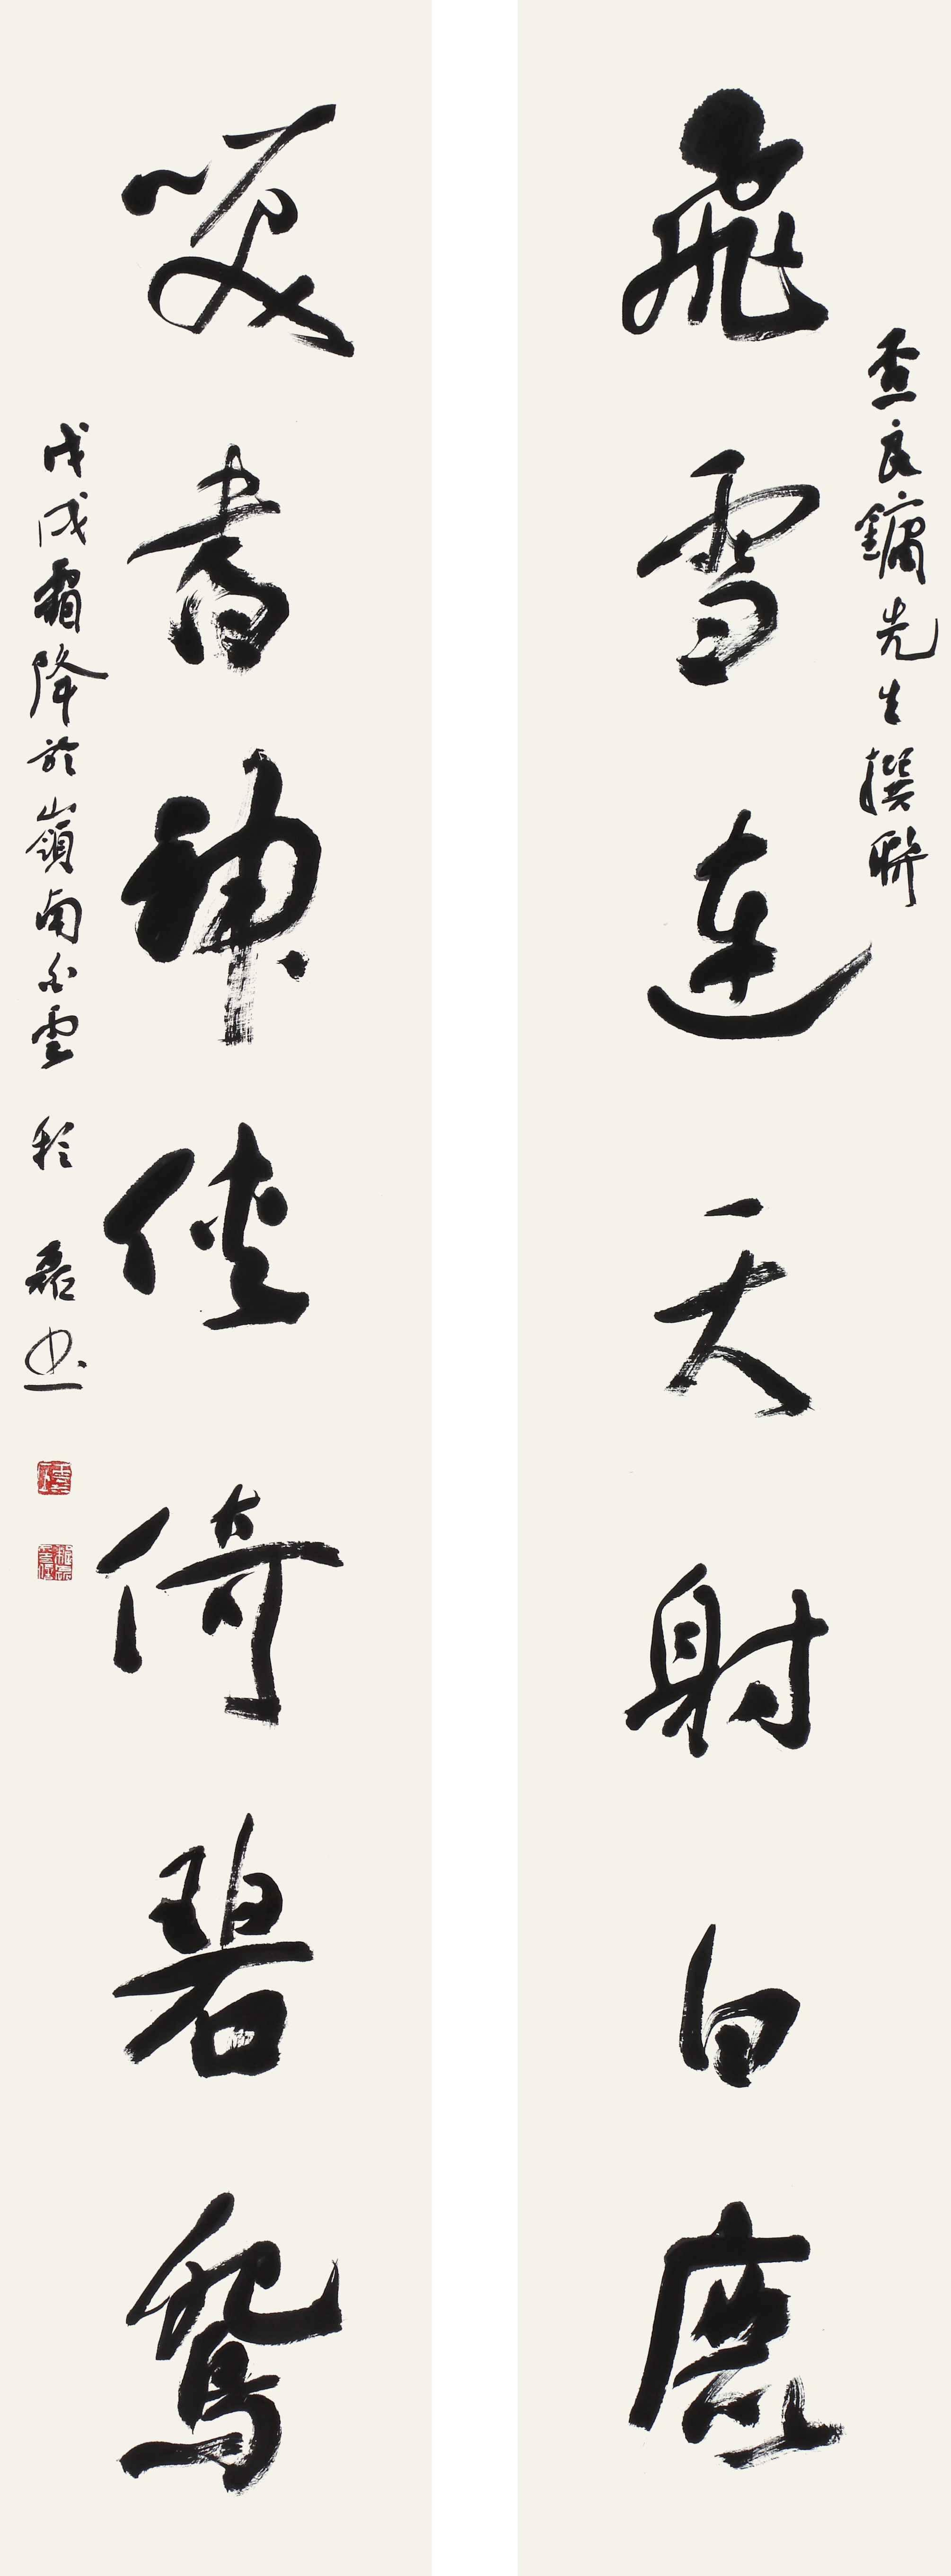 查良鏞先生撰聯
飛雪連天射白鹿
笑書神俠倚碧鴛
戊戌霜降於嶺南白雲 程磊書